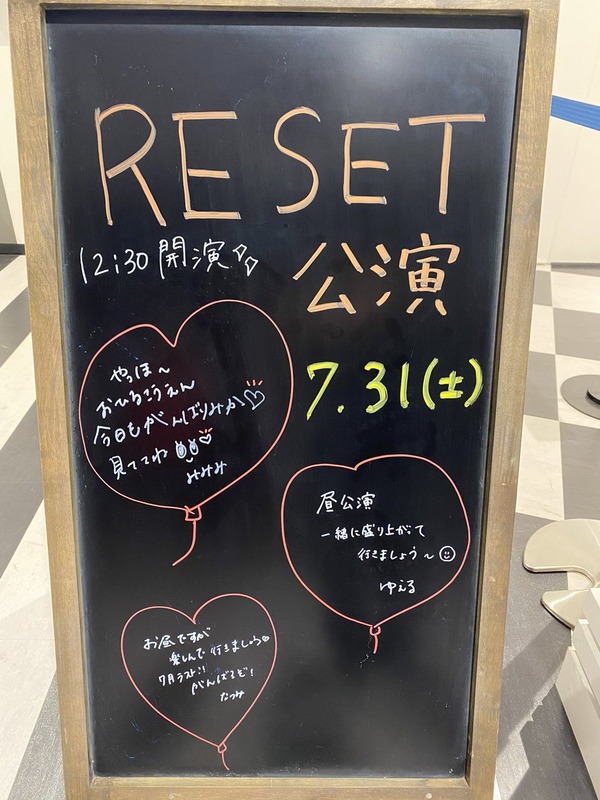 RESET
12:30 開演
公演
7.31(土)
やっほ〜
おひるこうえん
今日もがんばりみか♡
見ててね
みみみ
昼公演
一緒に盛り上がって
行きましょう〜☺
ゆえる
お昼ですが
楽しんで行きましょう
7月ラスト!!
がんばるぞ!
なつみ